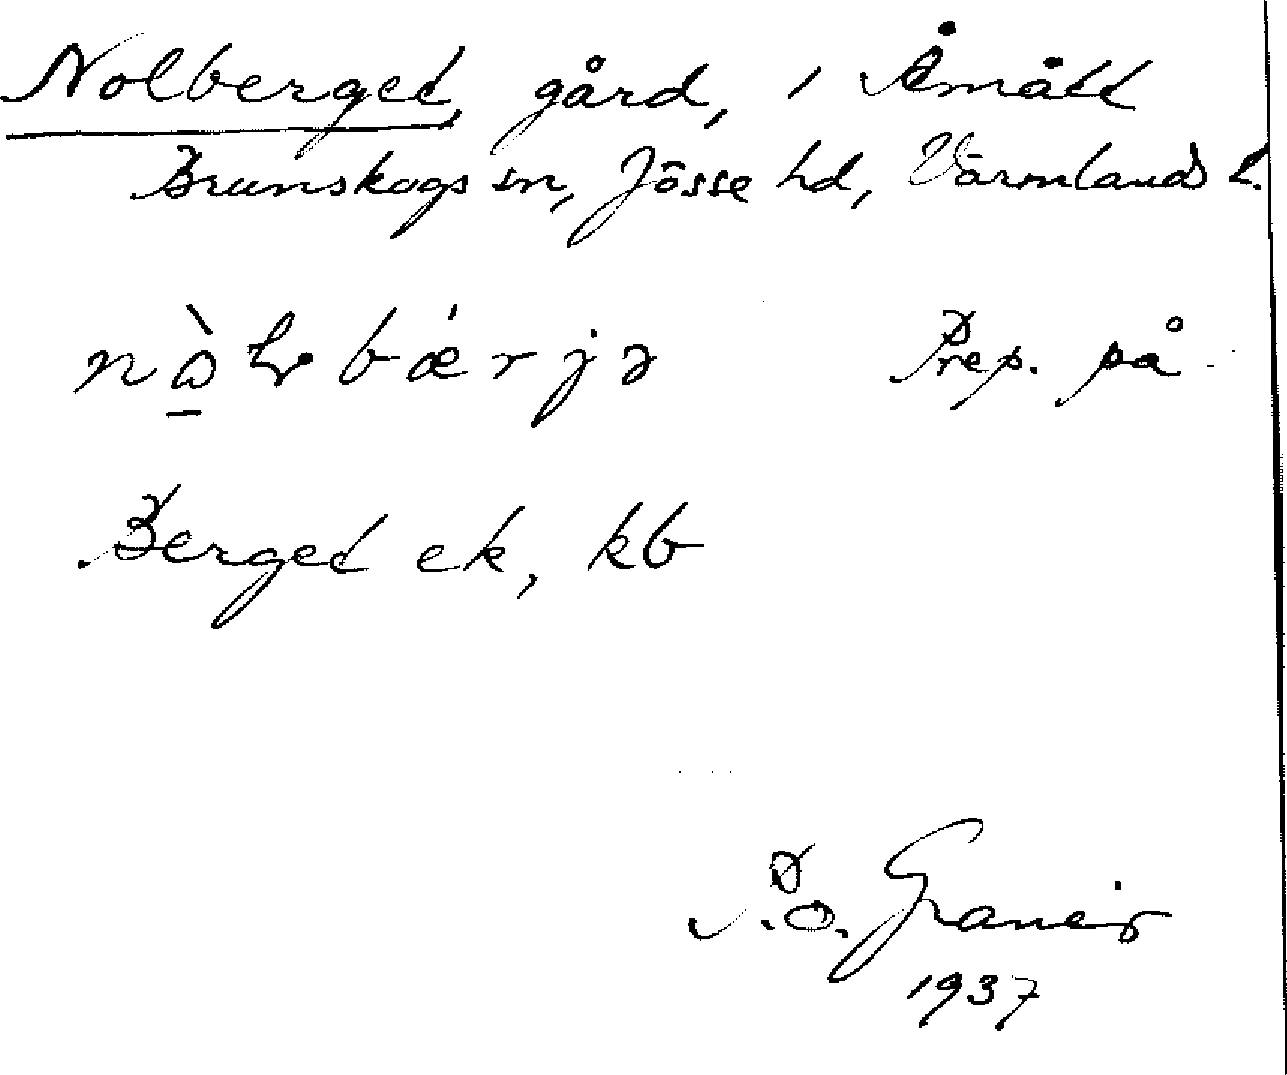 Nolberget, gård, i Åmått
Brunskogs sn, Jösse hd, Värmlands l.
Prep. på
Berget ek, kb
P.O. Granér
1937